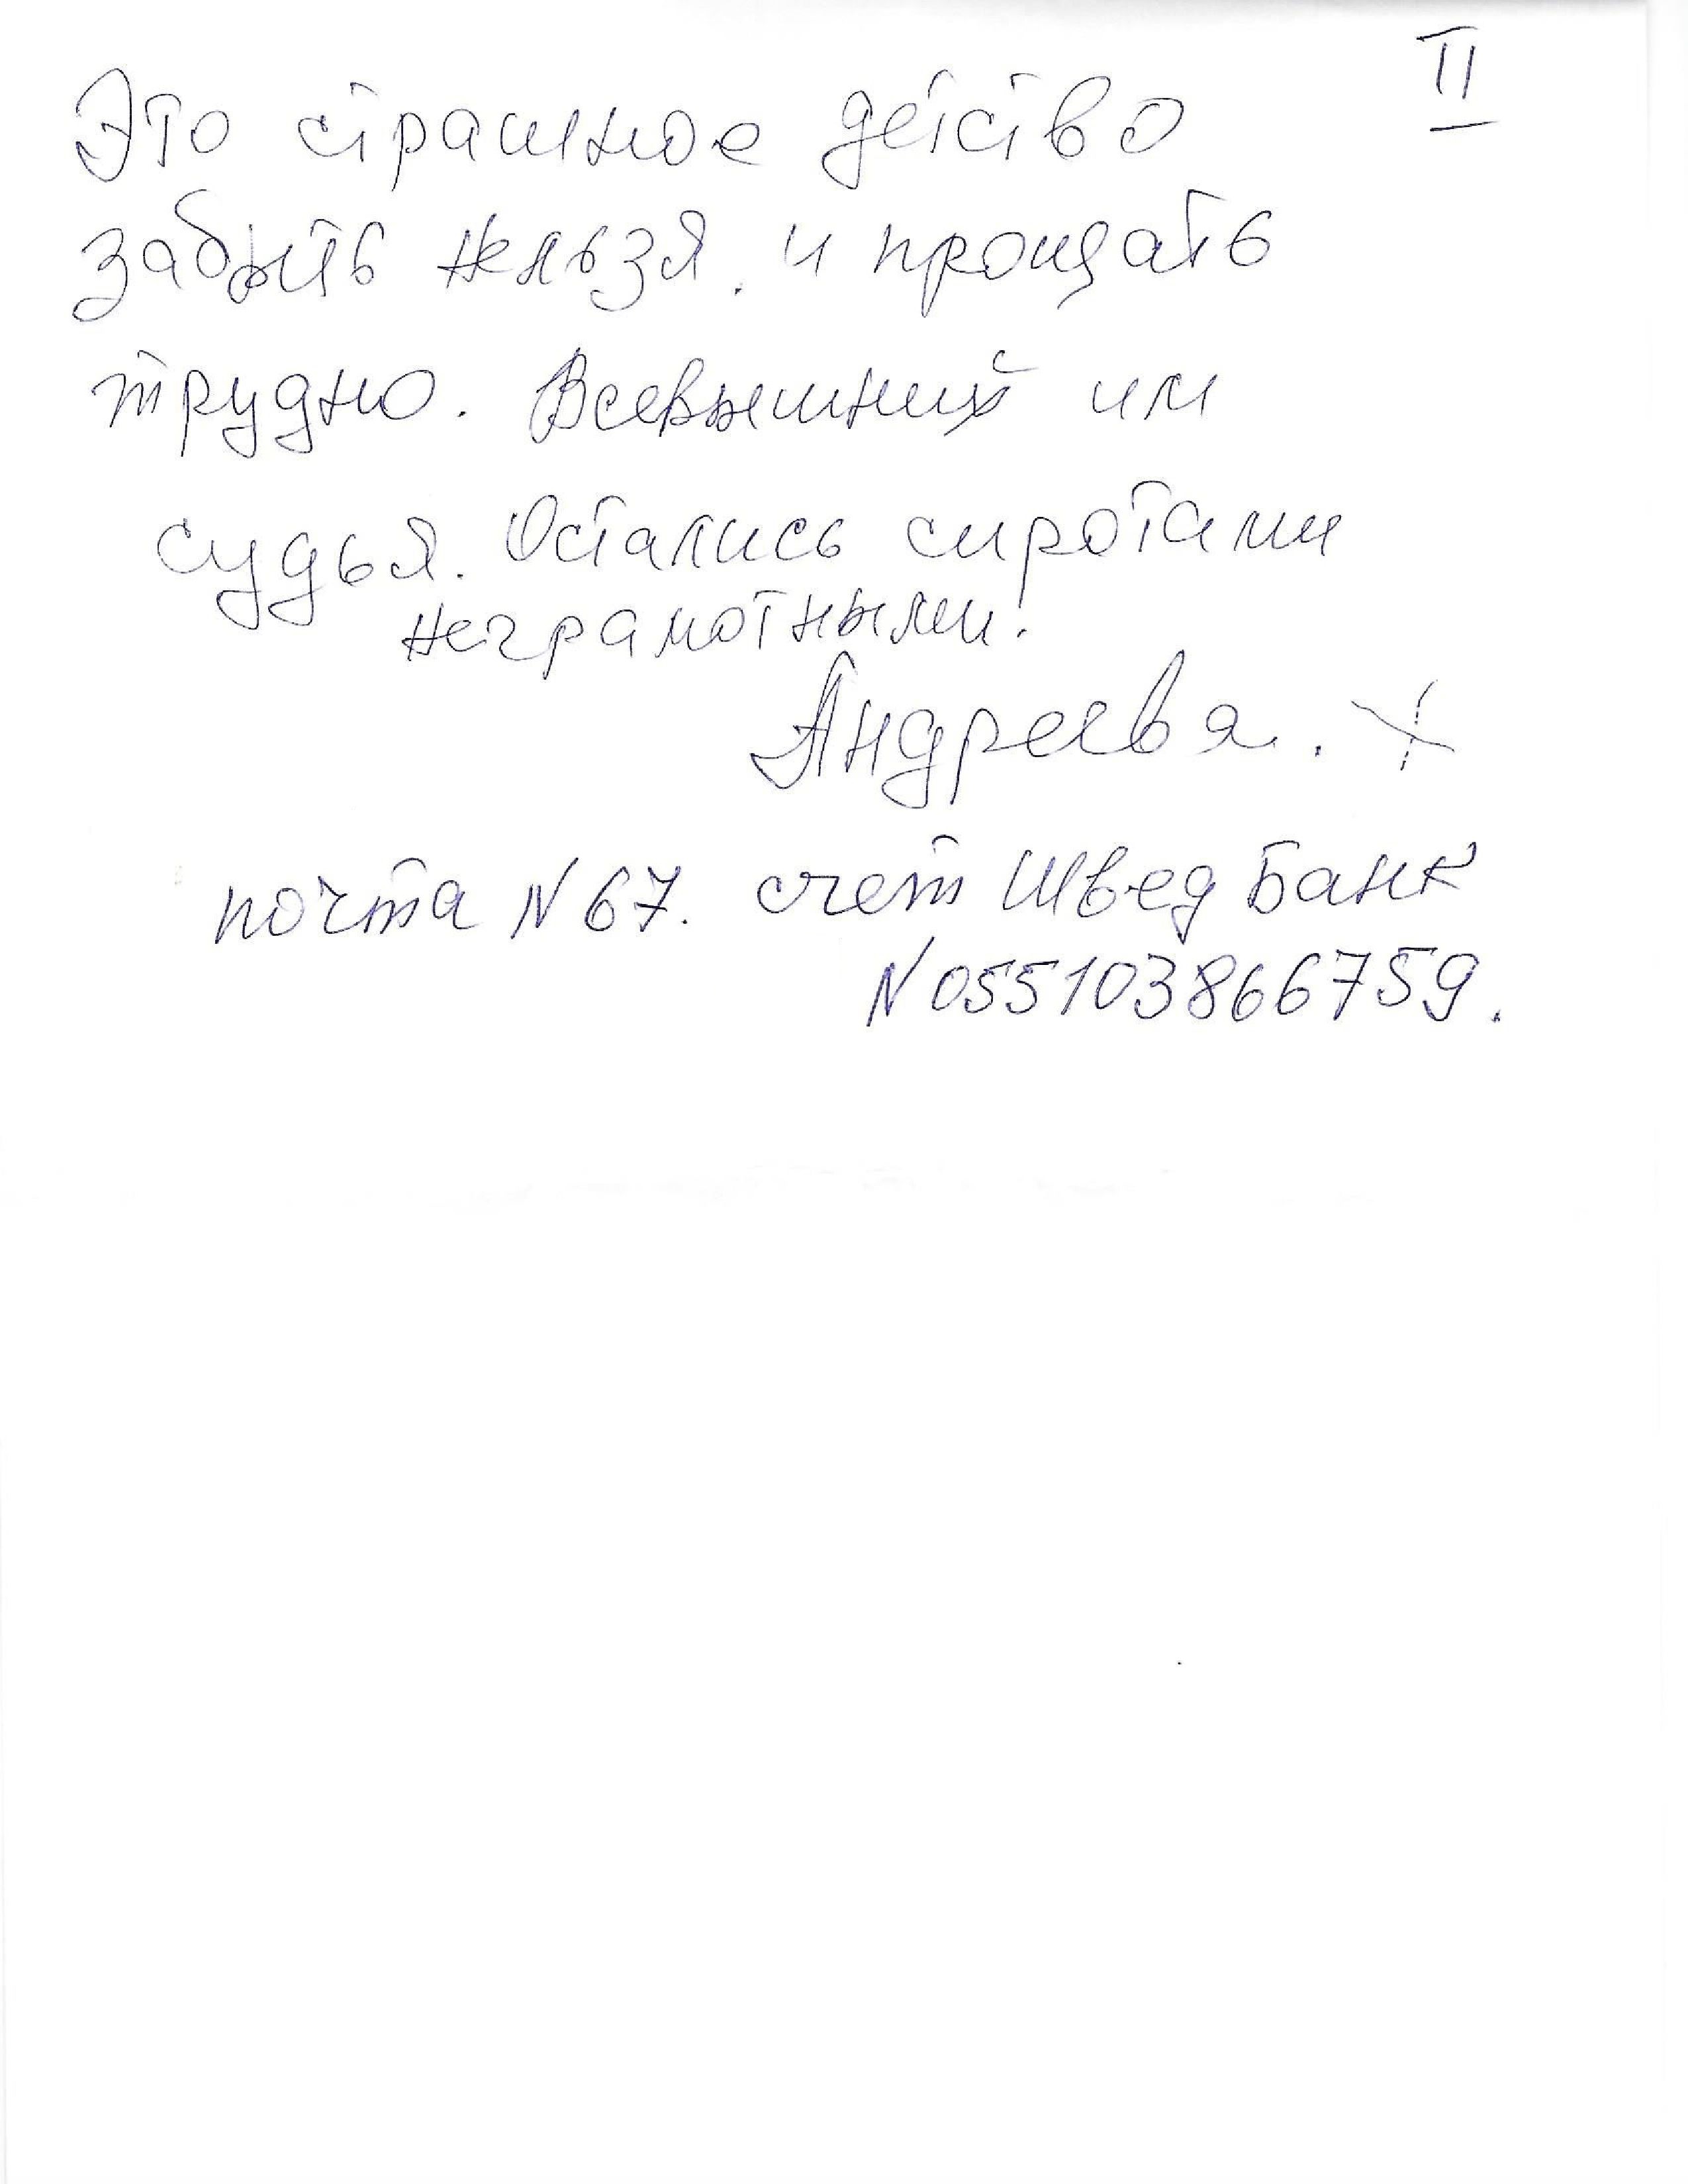 II
Это страшное детство
забыть нельзя. и прощать
трудно. Всевышний им
судья. Остались сиротами
неграмотными.
Андреева.
почта N 67. счет Швед Банк
N 055103866759.